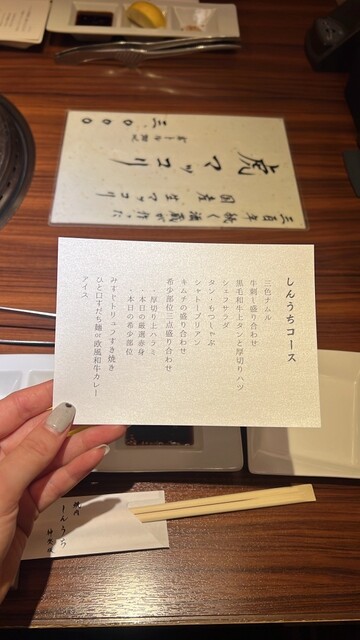 しんうちコース
三色ナムル
牛刺し盛り合わせ
黒毛和牛上タンと厚切りハツ
シェフサラダ
タン・もつしゃぶ
シャトーブリアン
キムチの盛り合わせ
希少部位三点盛り合わせ
・厚切り上ハラミ
・本日の厳選赤身
・本日の希少部位
みすじトリュフすき焼き
ひと口すだち麺or欧風和牛カレー
アイス
三百年続く酒蔵が作った
国産生マッコリ
虎マッコリ
三〇〇〇
焼肉
しんうち